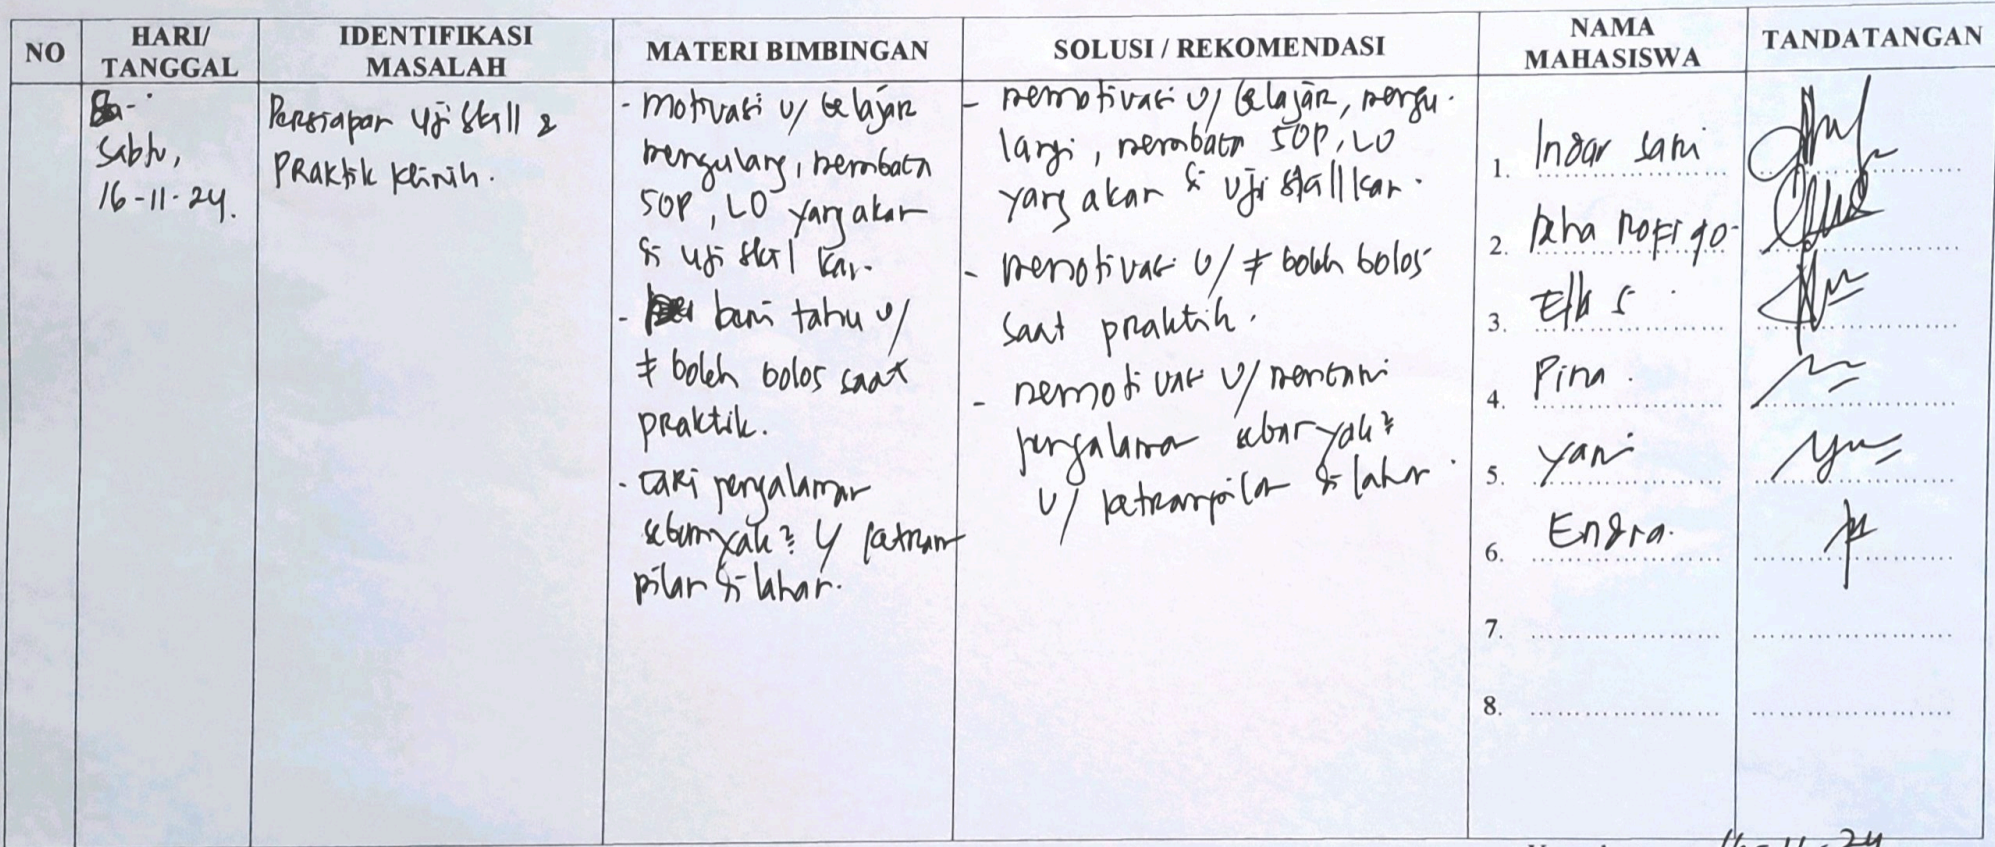 NO
HARI/ TANGGAL
IDENTIFIKASI MASALAH
MATERI BIMBINGAN
SOLUSI / REKOMENDASI
NAMA MAHASISWA
TANDATANGAN
Sabtu,
16-11-24.
Persiapan Uji Skill &
Praktik Klinik.
- Motivasi u/ belajar
mengulang, membaca
SOP, LO yang akan
di uji skil kan.
- beri tahu u/
≠ boleh bolos saat
praktik.
- cari pengalaman
sebanyak² u/ ketram
pilan di lahan.
- memotivasi u/ belajar, mengu
langi, membaca SOP, LO
yang akan di uji skill kan.
- memotivasi u/ ≠ boleh bolos
saat praktik.
- memotivasi u/ mencari
pengalaman sebanyak²
u/ ketrampilan di lahan.
1. Indar sari
2.
3. Elk S
4. Pina.
5. Yani
6. Endra.
7.
8.
16-11-24